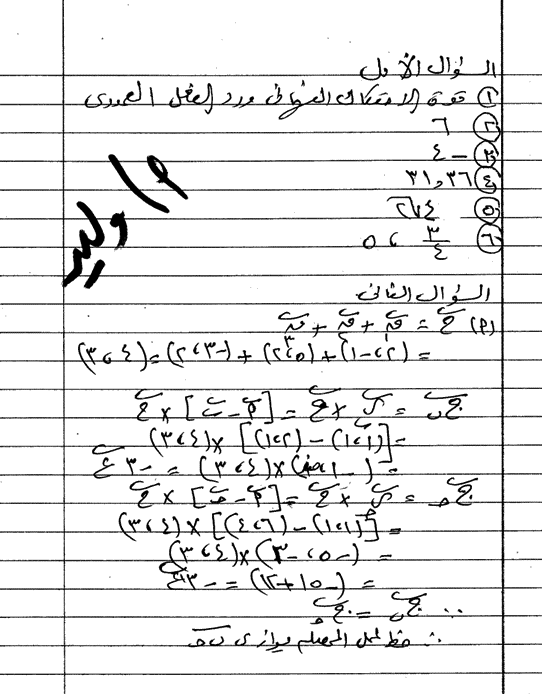 السؤال الأول
① قوة الاحتكاك النهائى ورد الفعل العمودى
② ٦
③ - ٤
④ ٣١,٣٦
⑤
⑥ ٣/٤ ، ٥
م/ وليد
السؤال الثانى
(٩) ح = ق١ + ق٢ + ق٣
= (-١، ٢) + (٥، ٢) + (-٣، ٢) = (٤، ٣)
جـب = ب × ح = [٩ - ب] × ح
= [(١،١) - (١،٢)] × (٤، ٣)
= (-١، ٠) × (٤، ٣) = - ٣ ع
جـحـ = × ح = [٩ - حـ] × ح
= [(١،١) - (٤،٦)] × (٤، ٣)
= (-٥، -٣) × (٤، ٣)
= (-١٥ + ١٢) = - ٣ ع
∵ جـب = جـحـ
∴ خط عمل المحصلة يوازى ب حـ